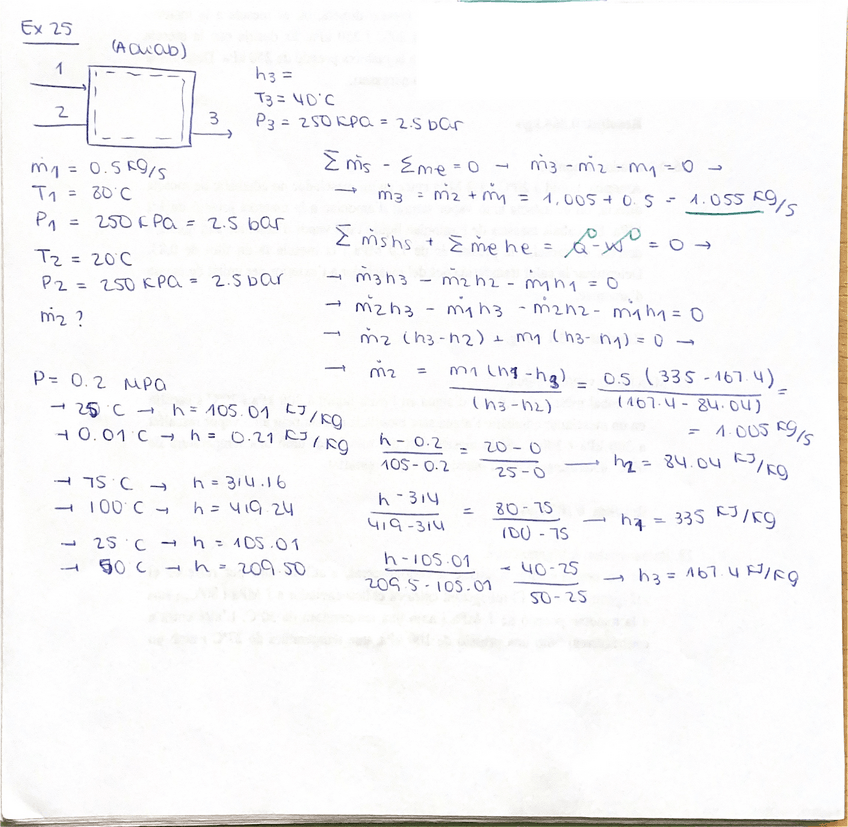 Ex 25
(Aquab)
1
2
3
h3 =
T3 = 40°C
P3 = 250 KPa = 2.5 bar
ṁ1 = 0.5 Kg/s
T1 = 80°C
P1 = 250 KPa = 2.5 bar
T2 = 20°C
P2 = 250 KPa = 2.5 bar
ṁ2 ?
Σ ṁs - Σ me = 0 → ṁ3 - ṁ2 - m1 = 0 →
→ ṁ3 = ṁ2 + ṁ1 = 1.005 + 0.5 = 1.055 Kg/s
Σ ṁs hs + Σ ṁe he = Q̇⁰ - Ẇ⁰ = 0 →
→ ṁ3h3 - ṁ2h2 - m1h1 = 0
→ ṁ2h3 - ṁ1h3 - ṁ2h2 - ṁ1h1 = 0
→ ṁ2 (h3-h2) + m1 (h3-h1) = 0 →
→ ṁ2 = m1 (h1-h3) / (h3-h2) = 0.5 (335 - 167.4) / (167.4 - 84.04) =
= 1.005 Kg/s
P = 0.2 MPa
→ 25°C → h = 105.01 KJ/Kg
→ 0.01°C → h = 0.21 KJ/Kg
h - 0.2 / 105 - 0.2 = 20 - 0 / 25 - 0 → h2 = 84.04 KJ/Kg
→ 75°C → h = 314.16
→ 100°C → h = 419.24
h - 314 / 419 - 314 = 80 - 75 / 100 - 75 → h1 = 335 KJ/Kg
→ 25°C → h = 105.01
→ 50°C → h = 209.50
h - 105.01 / 209.5 - 105.01 = 40 - 25 / 50 - 25 → h3 = 167.4 KJ/Kg